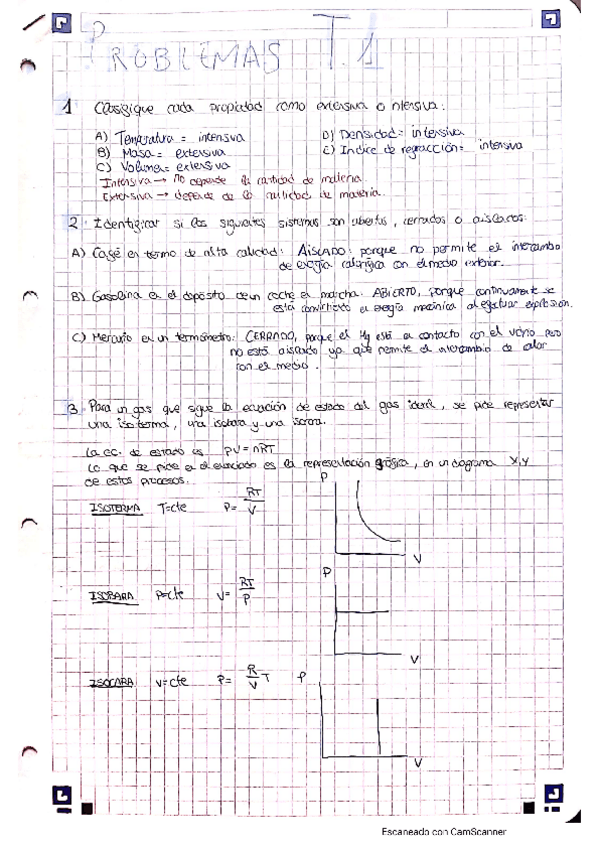 PROBLEMAS T.1
1 Clasifique cada propiedad como extensiva o intensiva:
A) Temperatura = intensiva
D) Densidad = intensiva
B) Masa = extensiva
E) Indice de refracción = intensiva
C) Volumen = extensiva
Intensiva → No depende la cantidad de materia
Extensiva → depende de la cantidad de materia.
2 Identificar si los siguientes sistemas son abiertos, cerrados o aislados:
A) Café en termo de alta calidad: AISLADO: porque no permite el intercambio
de energía calorífica con el medio exterior.
B) Gasolina en el depósito de un coche en marcha. ABIERTO, porque continuamente se
está convirtiendo en energía mecánica al efectuar explosión.
C) Mercurio en un termómetro: CERRADO, porque el Hg está en contacto con el vidrio pero
no está aislado ya que permite el intercambio de calor
con el medio.
3 Para un gas que sigue la ecuación de estado del gas ideal, se pide representar
una isoterma, una isobara y una isocora.
La ec. de estado es PV = nRT
Lo que se pide en el enunciado es la representación gráfica, en un diagrama X,Y
de estos procesos.
ISOTERMA T=cte P= RT/V
P
V
ISOBARA P=cte V= RT/P
P
V
ISOCARA V=cte P= R/V T
P
V
Escaneado con CamScanner